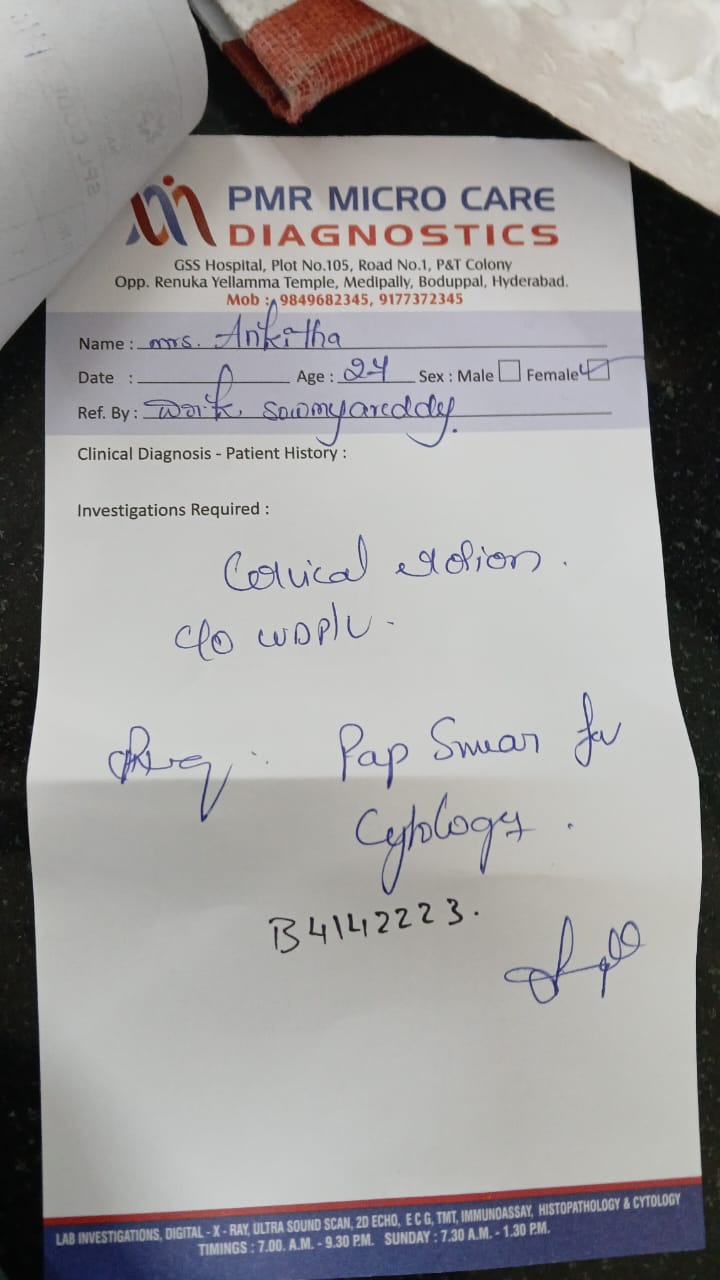 PMR MICRO CARE
DIAGNOSTICS
GSS Hospital, Plot No.105, Road No.1, P&T Colony
Opp. Renuka Yellamma Temple, Medipally, Boduppal, Hyderabad.
Mob : 9849682345, 9177372345
Name : mrs. Ankitha
Date : Age : 24 Sex : Male Female
Ref. By : sowmyareddy.
Clinical Diagnosis - Patient History :
Investigations Required :
Cervical erosion.
C/o WDP/V.
Pap Smear for
Cytology.
B4142223.
LAB INVESTIGATIONS, DIGITAL - X - RAY, ULTRA SOUND SCAN, 2D ECHO, E C G, TMT, IMMUNOASSAY, HISTOPATHOLOGY & CYTOLOGY
TIMINGS : 7.00. A.M. - 9.30 P.M. SUNDAY : 7.30 A.M. - 1.30 P.M.